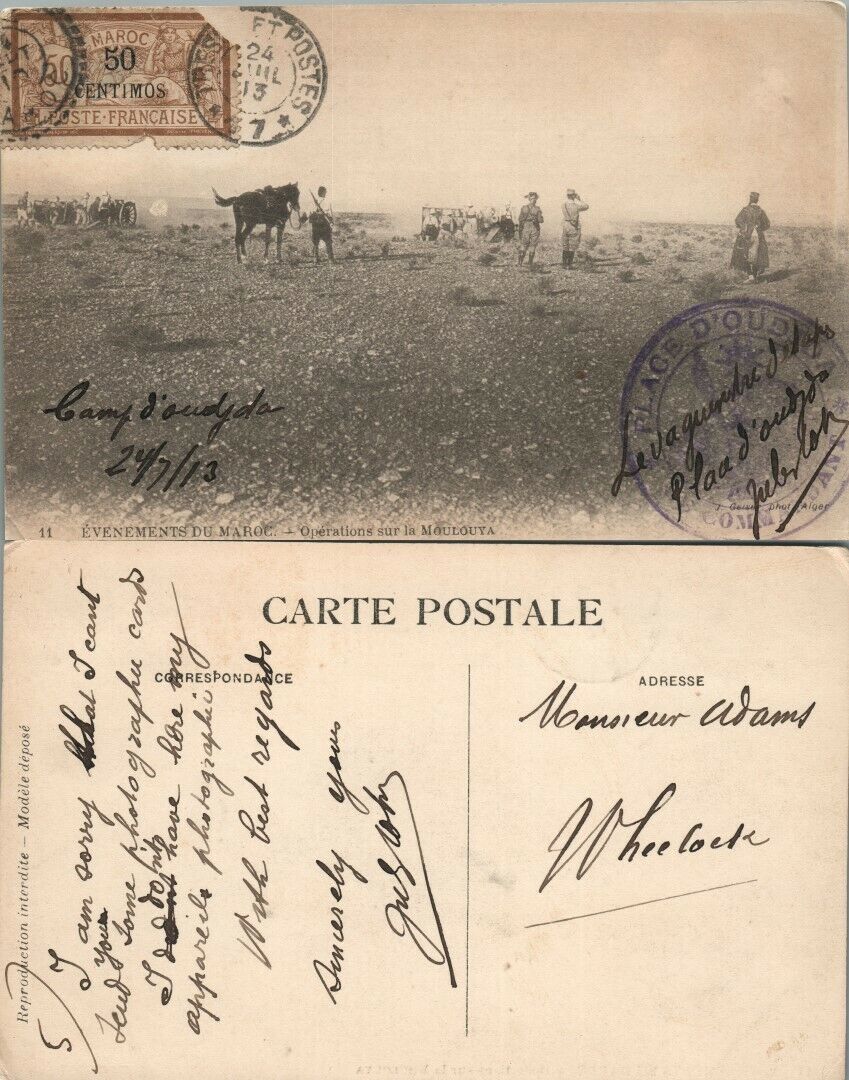 MAROC
50
50
CENTIMOS
POSTE FRANÇAISE
ET POSTES
24
JUIL
13
* 7 *
PLACE D'OUDJ
COMM
Camp d'oudjda
24/7/13
Le vaguemestre d'étapes
Place d'oudjda
J. Geiser phot. Alger
11 ÉVENEMENTS DU MAROC. — Opérations sur la MOULOUYA
CARTE POSTALE
CORRESPONDANCE
ADRESSE
Reproduction interdite — Modèle déposé
5
I am sorry that I cant
send you some photographic cards
I do not have here my
appareil photographic
With best regards
Sincerely yours
Monsieur Adams
Wheelock